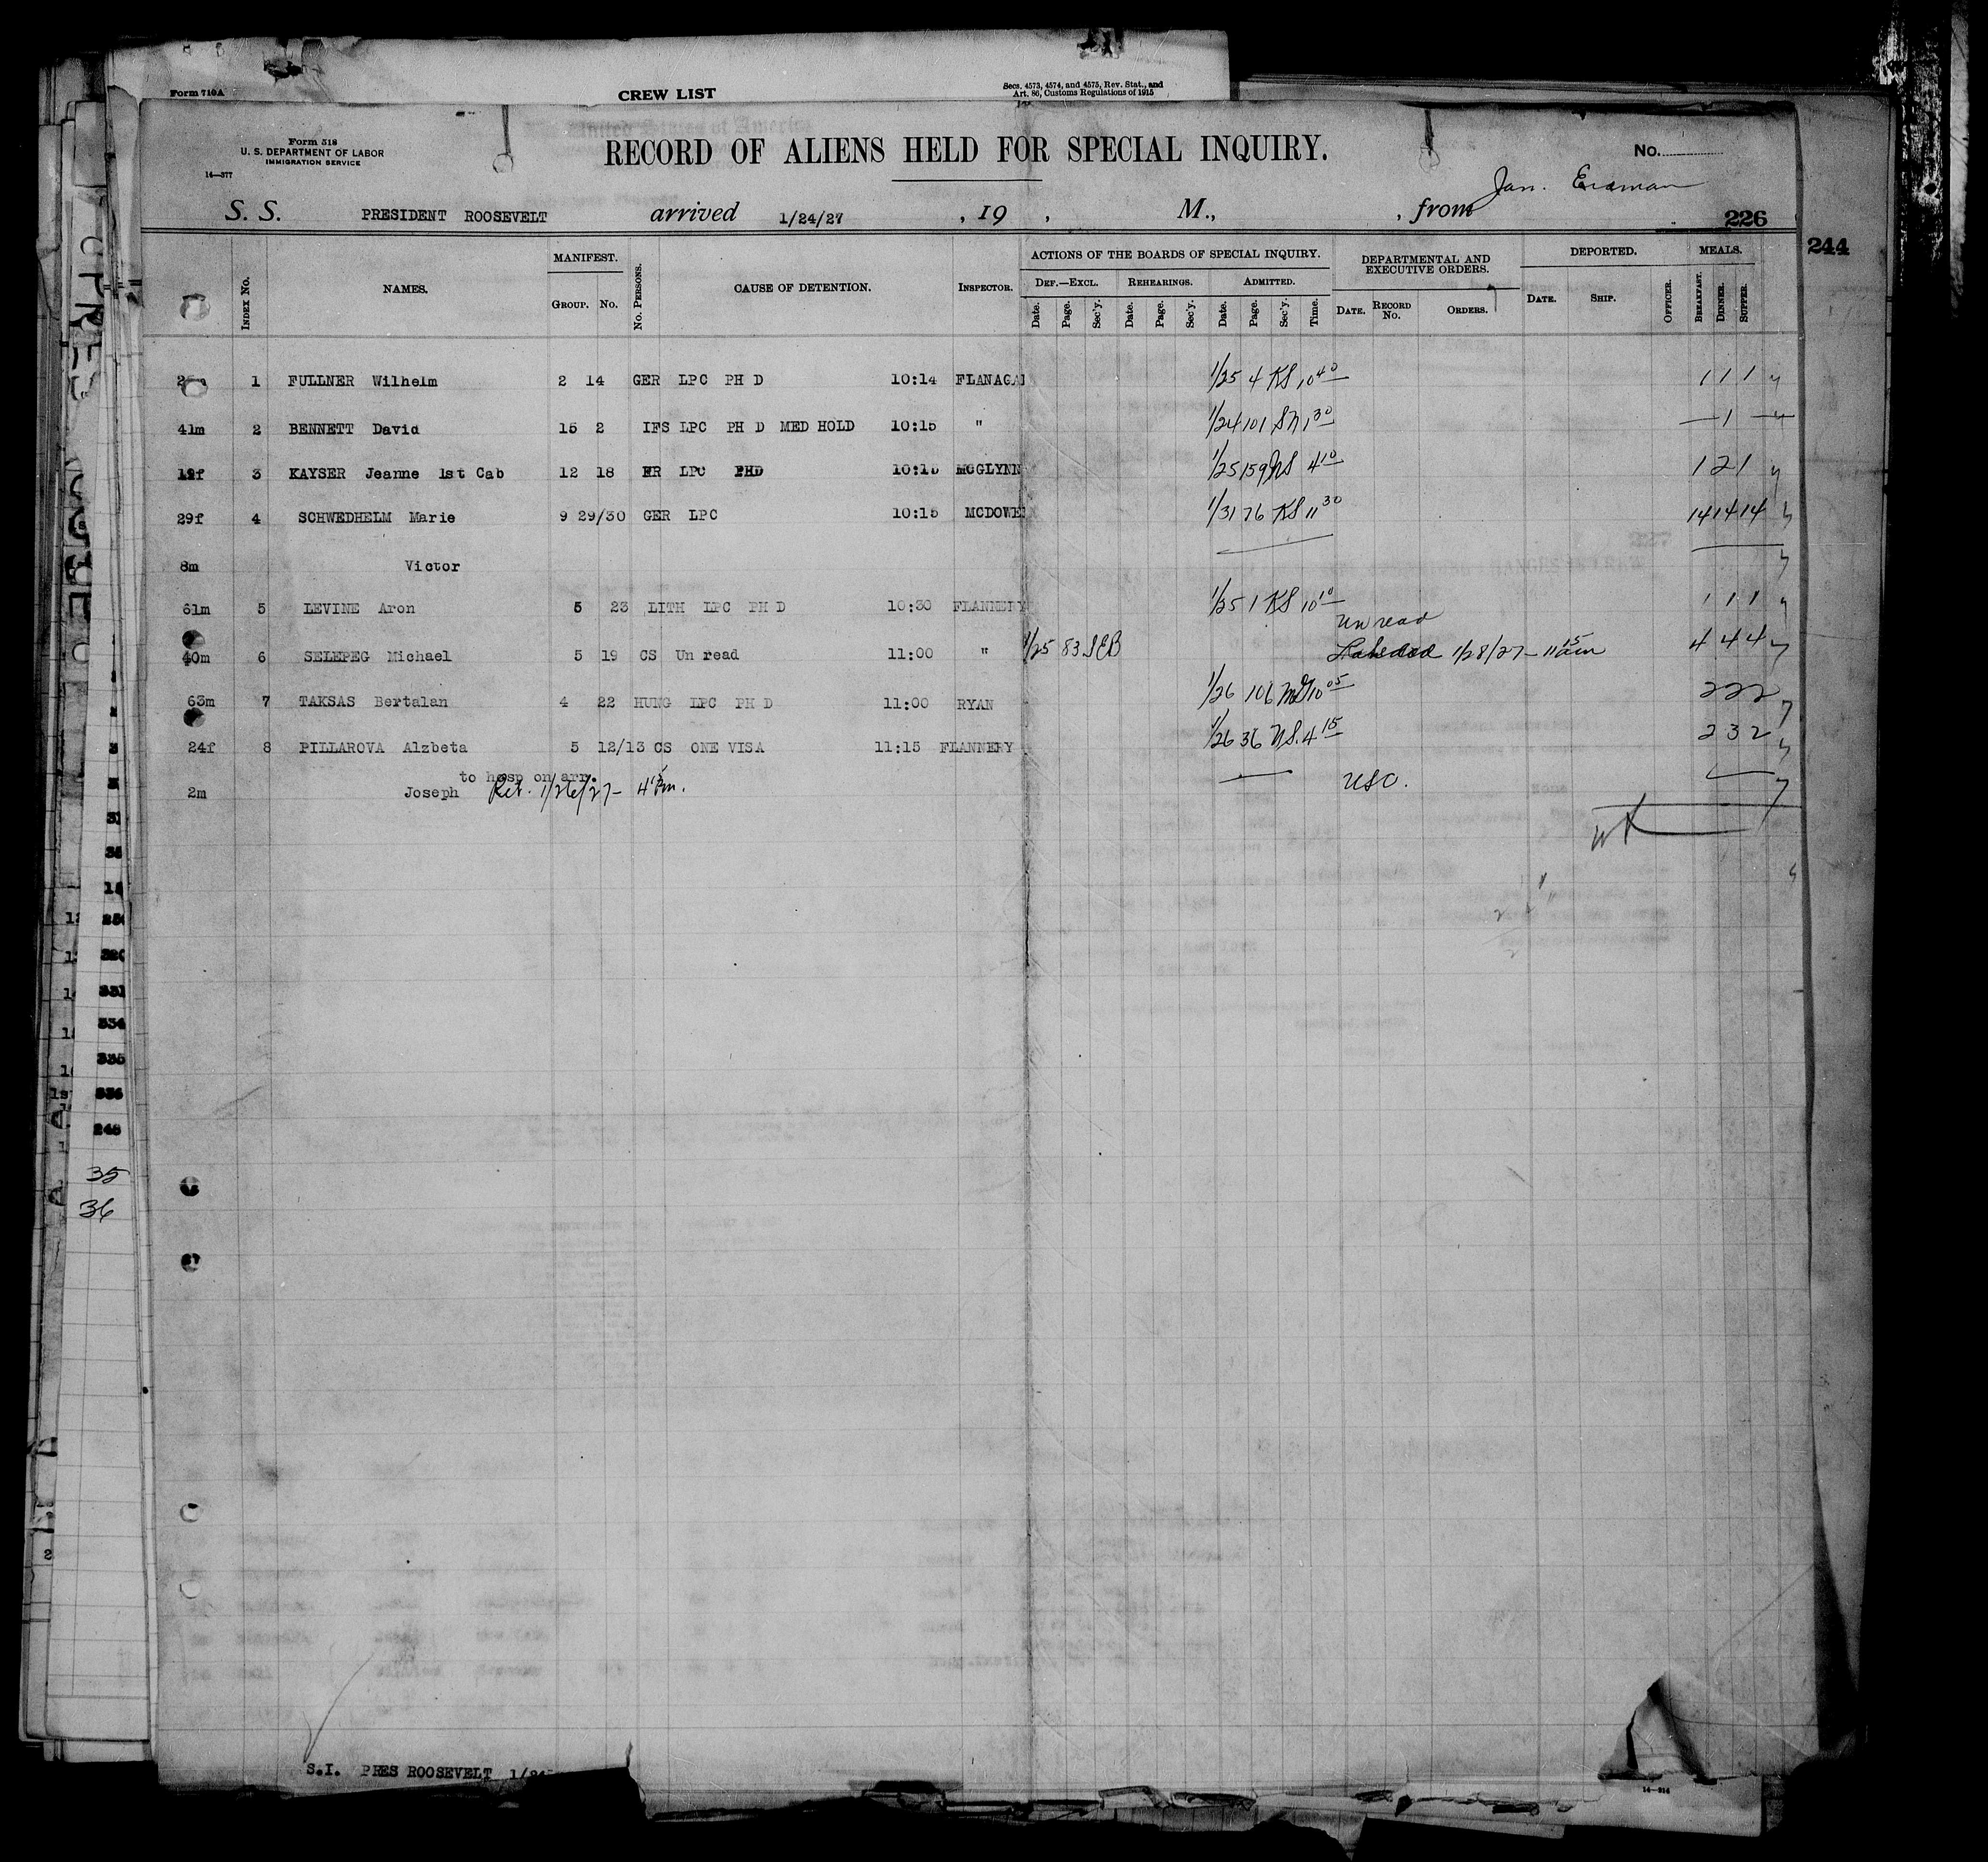 Form 710A CREW LIST Secs. 4573, 4574, and 4575, Rev. Stat., and
Art. 86, Customs Regulations of 1915
Form 518
U. S. DEPARTMENT OF LABOR
IMMIGRATION SERVICE
14—377
RECORD OF ALIENS HELD FOR SPECIAL INQUIRY.
No.
Jan.
S. S. PRESIDENT ROOSEVELT arrived 1/24/27 , 19 , M., , from
226
244
MANIFEST. ACTIONS OF THE BOARDS OF SPECIAL INQUIRY. DEPARTMENTAL AND EXECUTIVE ORDERS. DEPORTED. MEALS.
INDEX No. NAMES. GROUP. No. No. PERSONS. CAUSE OF DETENTION. INSPECTOR. DEF.—EXCL. REHEARINGS. ADMITTED.
Date. Page. Sec'y. Date. Page. Sec'y. Date. Page. Sec'y. Time. DATE. RECORD No. ORDERS. DATE. SHIP. OFFICER. BREAKFAST. DINNER. SUPPER.
1 FULLNER Wilhelm 2 14 GER LPC PH D 10:14 FLANAGAN 1/25 4 KS 10 40 1 1 1
41m 2 BENNETT David 15 2 IFS LPC PH D MED HOLD 10:15 " 1/24 101 SN 1 30 — 1 —
19f 3 KAYSER Jeanne 1st Cab 12 18 FR LPC PHD 10:15 MCGLYNN 1/25 159 NS 4 10 1 2 1
29f 4 SCHWEDHELM Marie 9 29/30 GER LPC 10:15 MCDOWE 1/31 76 KS 11 30 14 14 14
8m Victor
61m 5 LEVINE Aron 5 23 LITH LPC PH D 10:30 FLANNERY 1/25 1 KS 10 10 1 1 1
Un read
40m 6 SELEPEG Michael 5 19 CS Un read 11:00 " 1/25 83 SEB 1/28/27 - 11 15 am 4 4 4
63m 7 TAKSAS Bertalan 4 22 HUNG LPC PH D 11:00 RYAN 1/26 106 10 05 2 2 2
24f 8 PILLAROVA Alzbeta 5 12/13 CS ONE VISA 11:15 FLANNERY 1/26 36 NS. 4 15 2 3 2
to hosp on arr.
2m Joseph Ret. 1/26/27 - 4 15 Pm. USC.
35
36
S.I. PRES ROOSEVELT
14—914